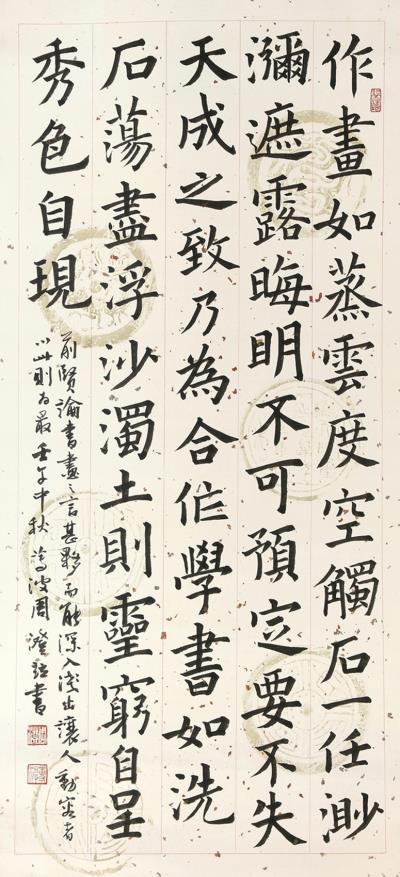 作畫如蒸雲度空觸石一任渺
瀰遮露晦明不可預定要不失
天成之致乃為合作學書如洗
石蕩盡浮沙濁土則靈窮自呈
秀色自現
前賢論書畫之言甚夥而能深入淺出讓人動容者
以此則為最 壬午中秋 周澄 書